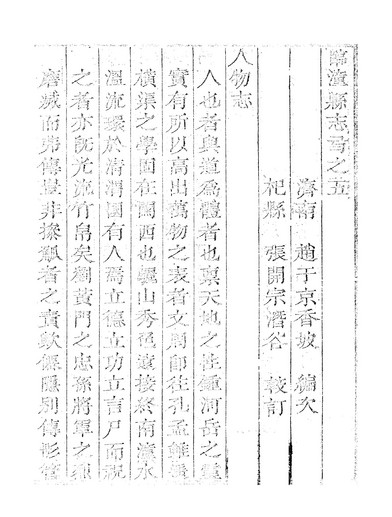 臨潼縣志卷之五
濟南 趙于京香坡 編次
杞縣 張開宗潛谷 較訂
人物志
人也者與道為體者也稟天地之性鍾河岳之靈
實有所以高出萬物之表者文周卽往孔孟雖
橫渠之學固在關西也驪山秀色遠接終南潼水
溫流環於清渭固有人焉立德立功立言尸而祝
之者亦旣光流竹帛矣獨黃門之忠孫將軍之烈
磨滅而弗傳豈非操觚者之責歟隱別傳彤管